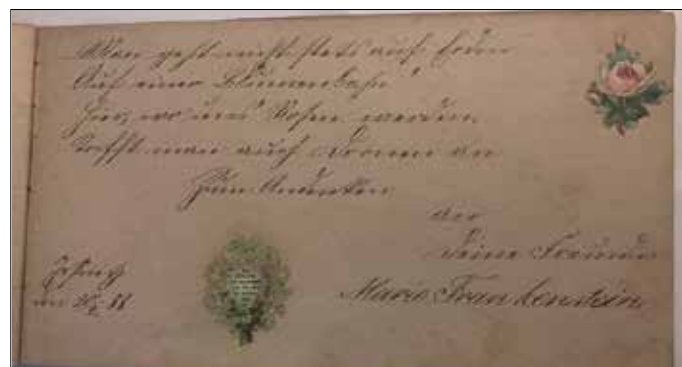 Man geht nicht stets auf Erden
Auf einer Blumenbahn
Hier, wo uns Rosen werden
Trifft man auch Dornen an
Zum Andenken
an
Deine Freundin
Marie Frankenstein